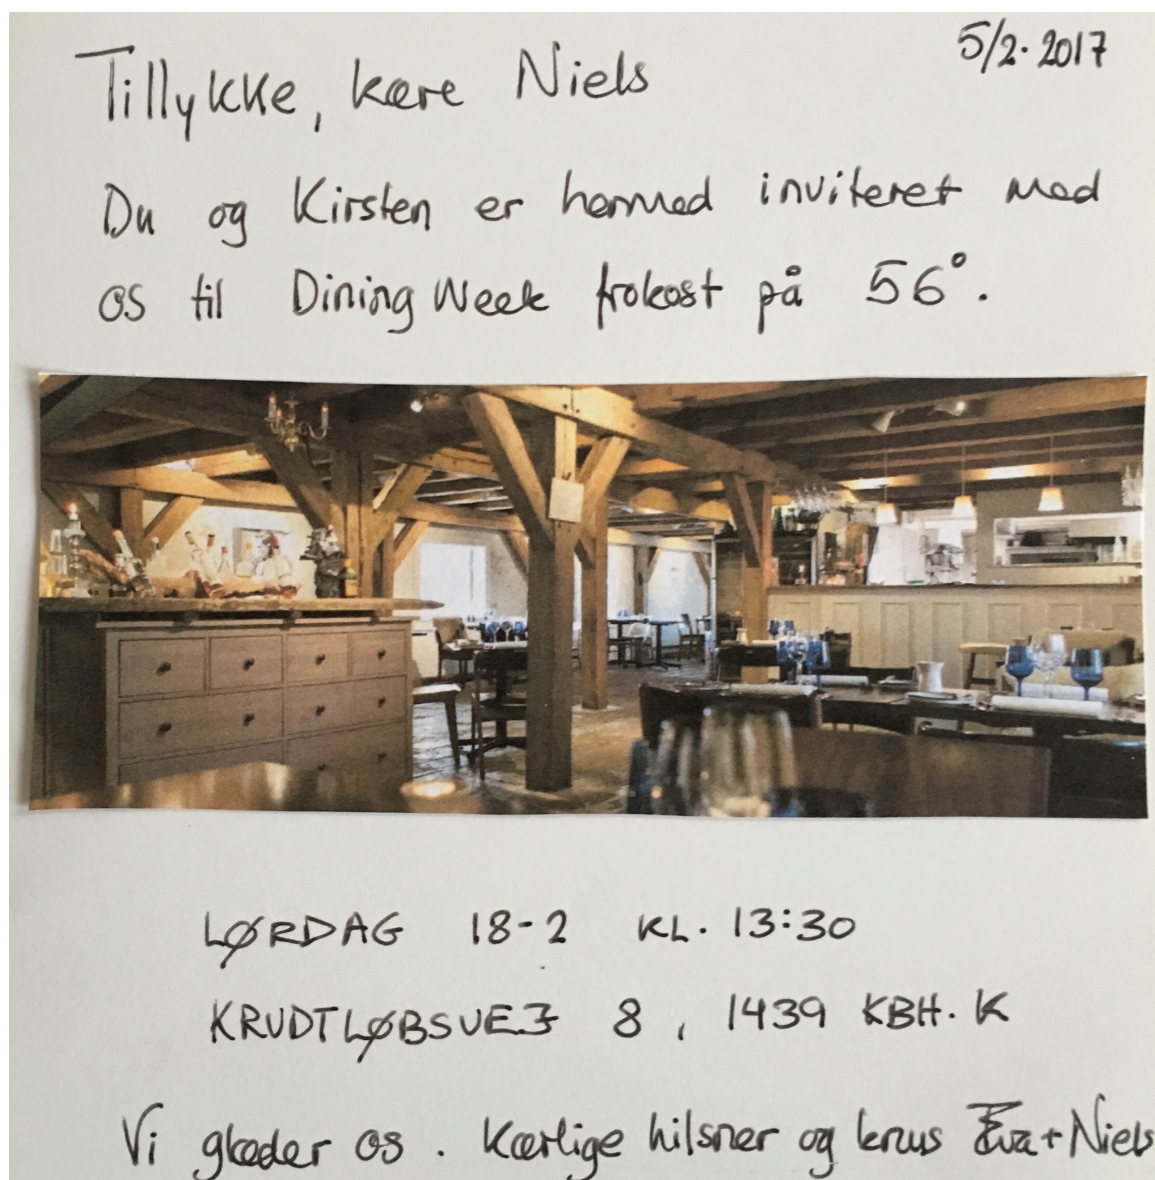 5/2-2017
Tillykke, kære Niels
Du og Kirsten er hermed inviteret med
os til Dining Week frokost på 56°.
LØRDAG 18-2 KL. 13:30
KRUDTLØBSVEJ 8, 1439 KBH. K
Vi glæder os. Kærlige hilsner og knus Eva + Niels